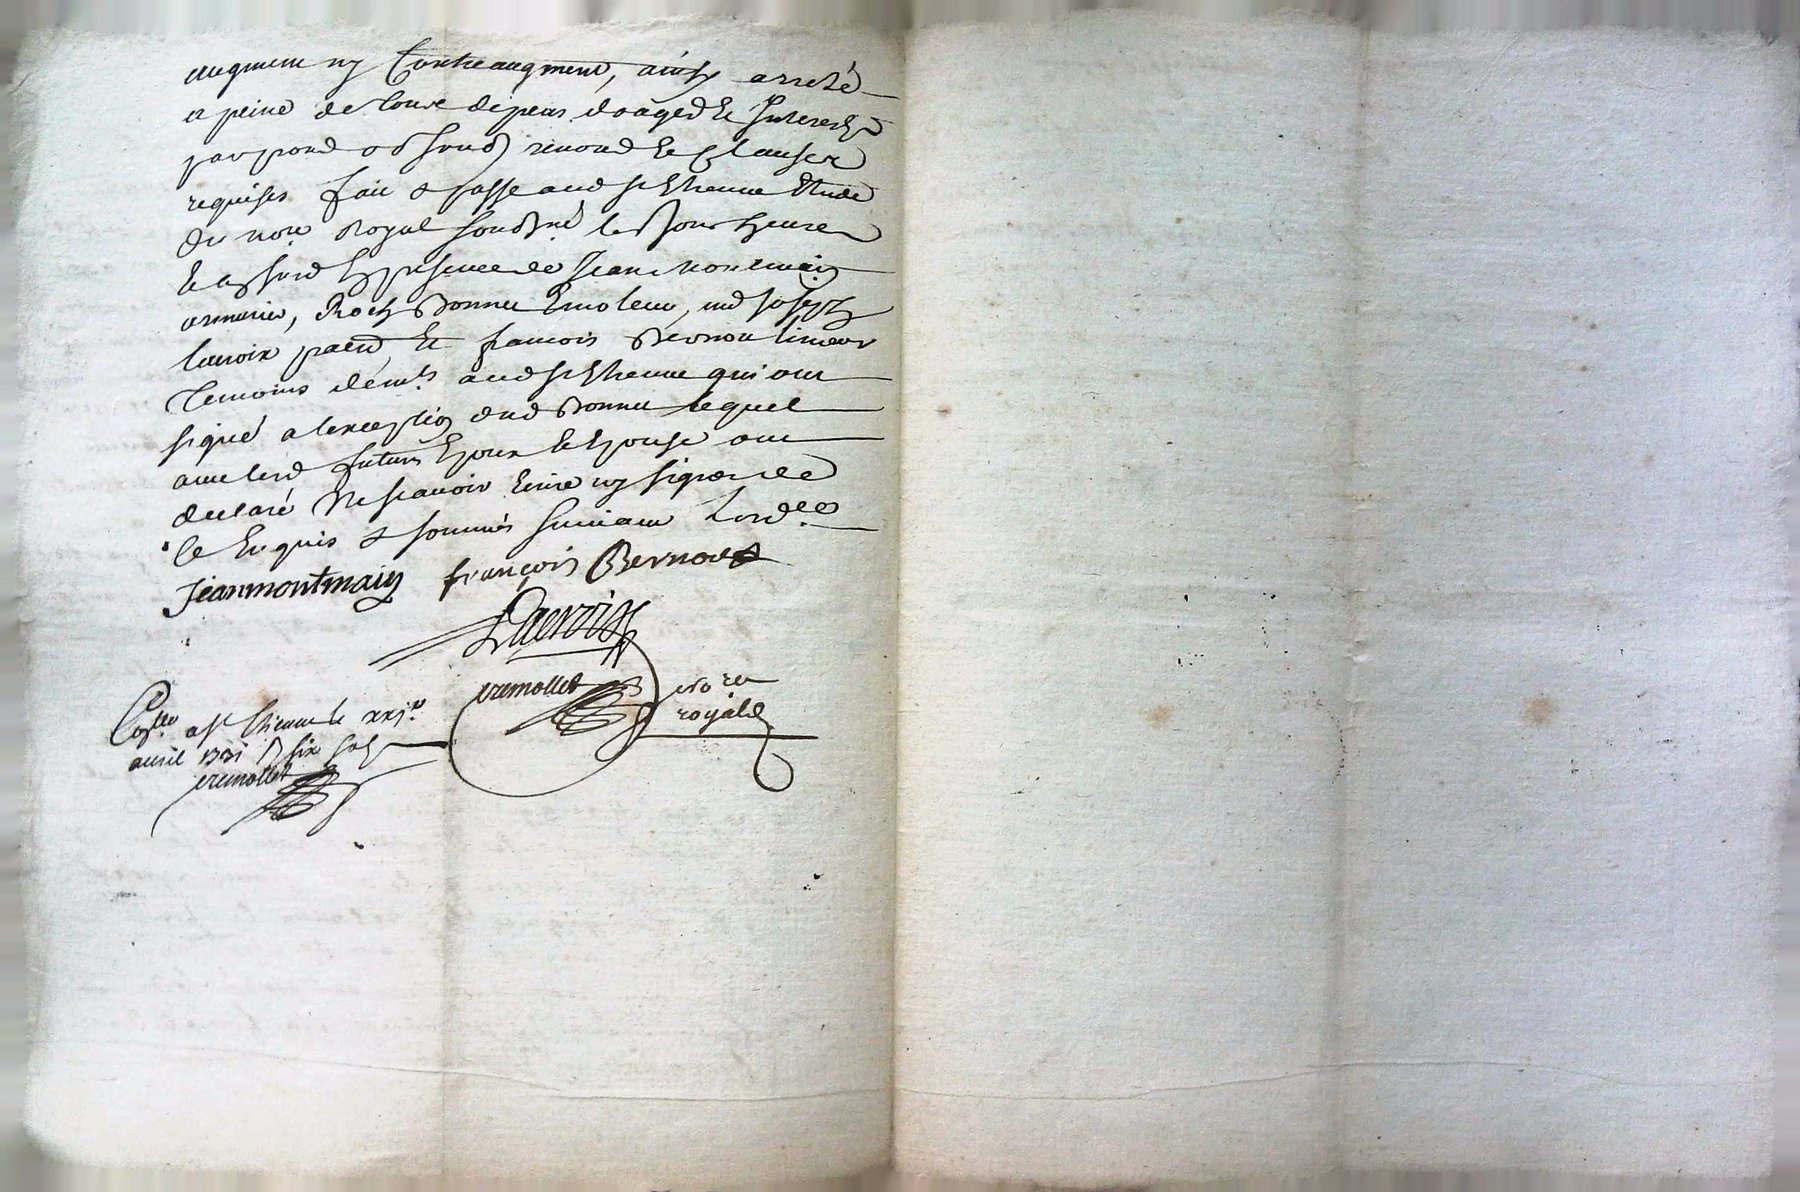 augment ny Contreaugment, ainsy arreté
a peine de tous depens domages et Interests
par
requises fait & passé aud st Etienne Etude
du nore Royal soussné les jour heure
et an susd En presence de Jean montmain
armurier, Roch Bonnet Emoleur, me Joseph
lacroix patn et francois Bernou limeur
temoins demts aud st Etienne qui ont
signé a lexception dud Bonnet lequel
avec lesd futurs Epoux et Epouse ont
declaré Ne scavoir Ecrire ny signer de
ce Enquis & sommés suivant Lordce
Jean montmain françois Bernou
Lacroix
tremollet nore
royal
Collé a st Etienne le xxje
avril 1731 R six sols
tremollet